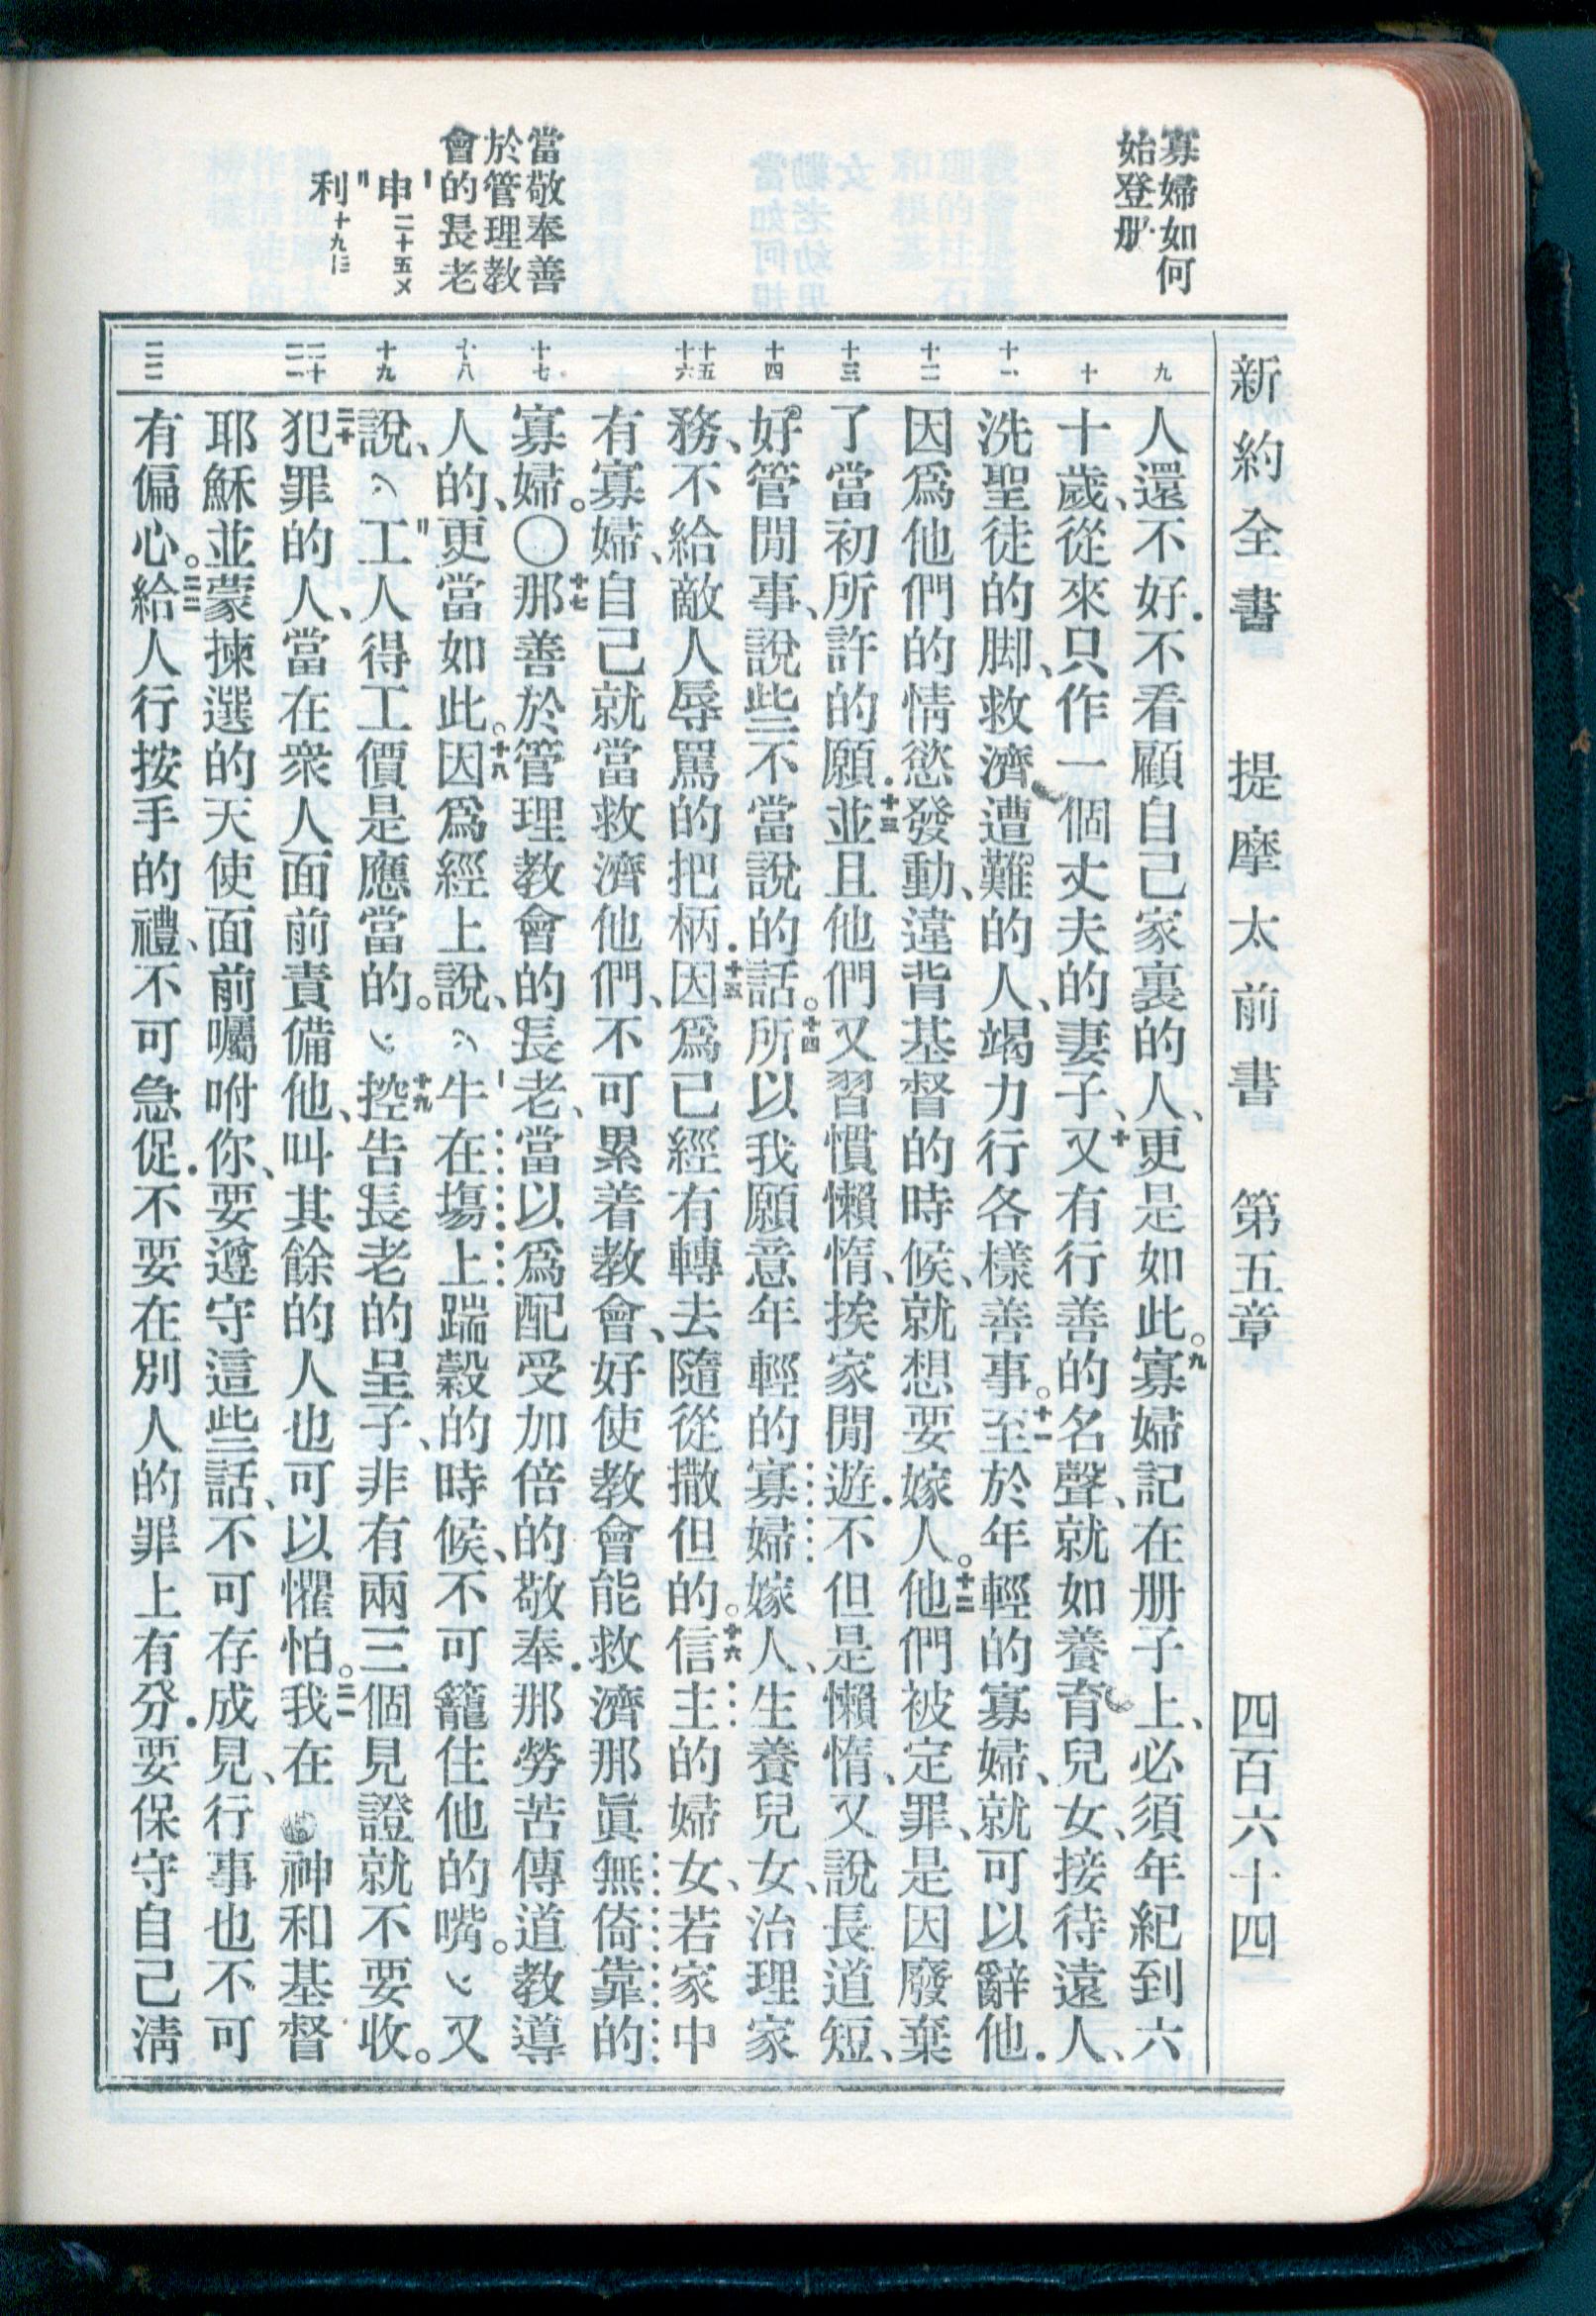 新約全書 提摩太前書 第五章 四百六十四
寡婦如何
始登册
當敬奉善
於管理教
會的長老
申二十五〤
利十九〨
九
十
十一
十二
十三
十四
十五
十六
十七
十八
十九
二十
二一
二二
人還不好．不看顧自己家裏的人、更是如此。九寡婦記在册子上、必須年紀到六
十歲、從來只作一個丈夫的妻子、十又有行善的名聲、就如養育兒女、接待遠人、
洗聖徒的脚、救濟遭難的人、竭力行各樣善事。十一至於年輕的寡婦、就可以辭他．
因爲他們的情慾發動、違背基督的時候、就想要嫁人。十二他們被定罪、是因廢棄
了當初所許的願．十三並且他們又習慣懶惰、挨家閒遊．不但是懶惰、又說長道短、
好管閒事、說些不當說的話。十四所以我願意年輕的寡婦嫁人、生養兒女、治理家
務、不給敵人辱罵的把柄．十五因爲已經有轉去隨從撒但的。十六信主的婦女、若家中
有寡婦、自己就當救濟他們、不可累着教會、好使教會能救濟那眞無倚靠的
寡婦。〇十七那善於管理教會的長老、當以爲配受加倍的敬奉．那勞苦傳道教導
人的、更當如此。十八因爲經上說、牛在塲上踹穀的時候、不可籠住他的嘴。又
說、工人得工價是應當的。十九控告長老的呈子、非有兩三個見證就不要收。
二十犯罪的人、當在衆人面前責備他、叫其餘的人也可以懼怕。二一我在神和基督
耶穌並蒙揀選的天使面前囑咐你、要遵守這些話、不可存成見、行事也不可
有偏心。二二給人行按手的禮、不可急促．不要在別人的罪上有分．要保守自己淸